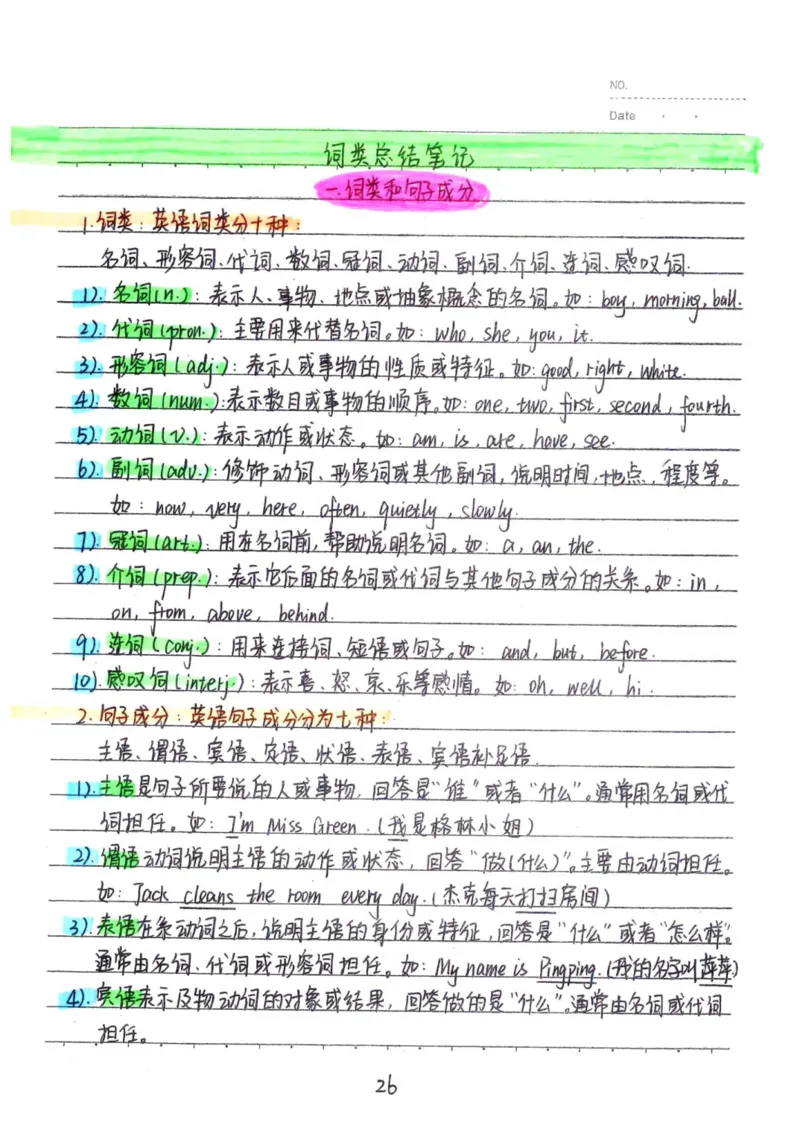 NO.
Date
词类总结笔记
一.词类和句子成分
1.词类：英语词类分十种：
名词、形容词、代词、数词、冠词、动词、副词、介词、连词、感叹词.
1).名词(n.)：表示人、事物、地点或抽象概念的名词。如：boy, morning, ball.
2).代词(pron.)：主要用来代替名词。如：who, she, you, it.
3).形容词(adj.)：表示人或事物的性质或特征。如:good, right, white.
4).数词(num.):表示数目或事物的顺序。如:one, two, first, second, fourth.
5).动词(v.)：表示动作或状态。如：am, is, are, have, see.
6).副词(adv.)：修饰动词、形容词或其他副词,说明时间,地点,程度等。
如：now, very, here, often, quietly, slowly.
7).冠词(art.)：用在名词前,帮助说明名词。如：a, an, the.
8).介词(prep.)：表示它后面的名词或代词与其他句子成分的关系。如：in,
on, from, above, behind.
9).连词(conj.)：用来连接词、短语或句子。如：and, but, before.
10).感叹词(interj.)：表示喜、怒、哀、乐等感情。如：oh, well, hi.
2.句子成分：英语句子成分分为七种：
主语、谓语、宾语、定语、状语、表语、宾语补足语.
1).主语是句子所要说的人或事物,回答是“谁”或者“什么”。通常用名词或代
词担任。如：I'm Miss Green.(我是格林小姐)
2).谓语动词说明主语的动作或状态,回答“做(什么)”。主要由动词担任。
如：Jack cleans the room every day.(杰克每天打扫房间)
3).表语在系动词之后,说明主语的身份或特征,回答是“什么”或者“怎么样”。
通常由名词、代词或形容词担任。如：My name is Pingping.(我的名字叫萍萍)
4).宾语表示及物动词的对象或结果,回答做的是“什么”。通常由名词或代词
担任。
26